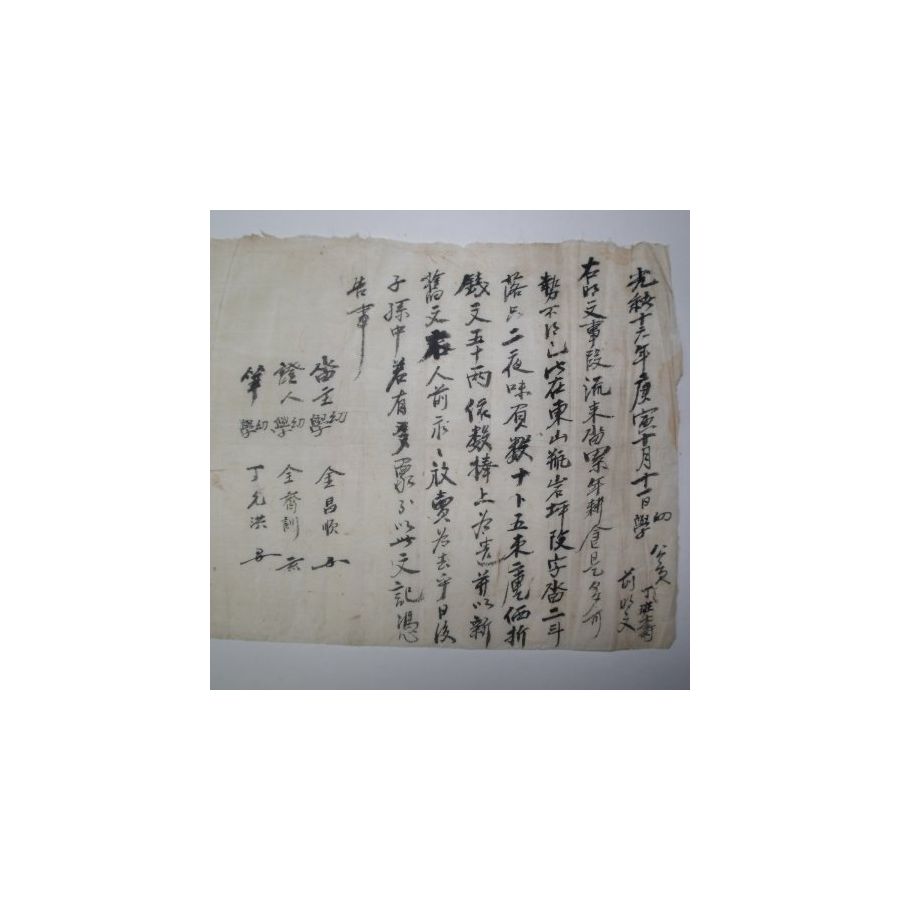 光緒十六年庚寅十月十一日幼學
前明文
右明文事段流来畓累年耕食是多可
勢不得已伏在東山瓶岩坪字畓二斗
落只二夜味負数十卜五束庫価折
錢文五十両依数捧上為遣并以新
舊文右人前永〻放賣為去乎日後
子孫中若有雜以此文記憑
告事
畓主幼學 金昌順
證人幼學 全齊訓
筆幼學 丁允洪